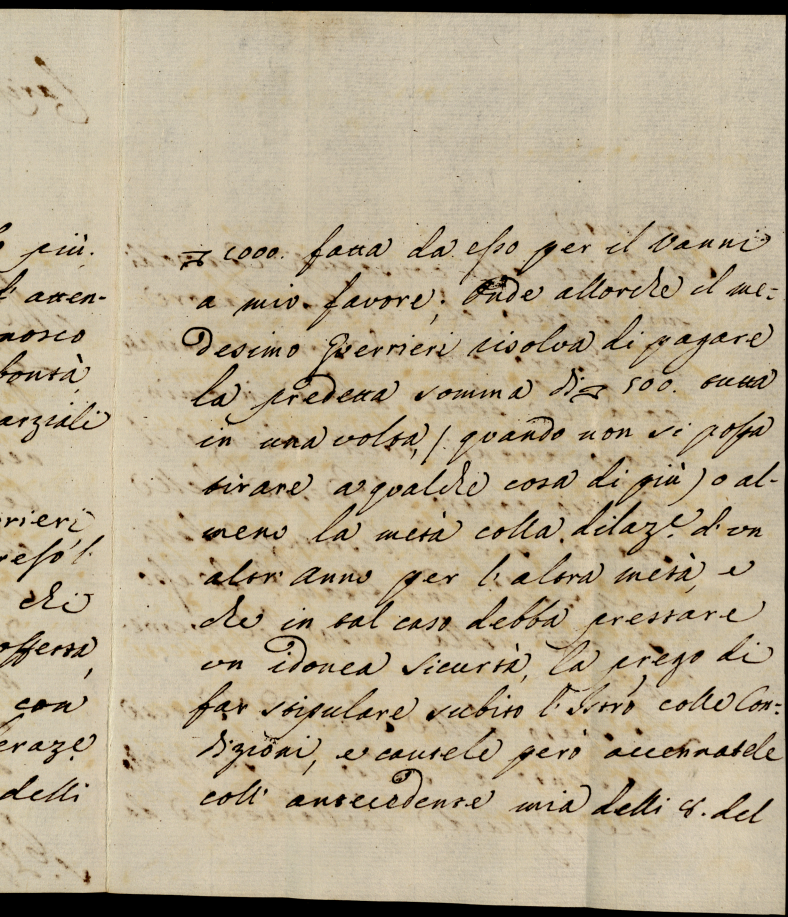 più.
atten-
nosco
bontà
arziali
rrieri
reso l'
che
offerta,
con
eraz.e
delli
1000. fatta da esso per il Vanni
a mio favore; Onde allorche il me-
desimo Guerrieri risolva di pagare
la predetta somma di 500. tutta
in una volta, (quando non si possa
tirare a qualche cosa di più) o al-
meno la metà colla dilaz.e d'un
altr'Anno per l'altra metà, e
che in tal caso debba prestare
un idonea sicurtà, la prego di
far stipulare subito l'Istro colle Con-
dizioni, e cautele però accennatele
coll'antecedente mia delli 8. del